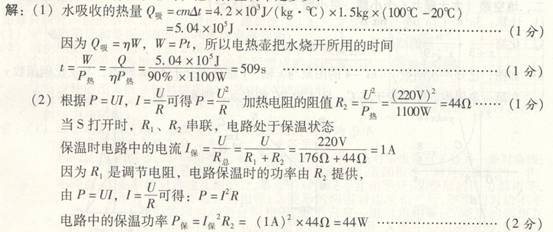 解：(1) 水吸收的热量 Q吸 = cmΔt = 4.2×10³J/(kg·℃)×1.5kg×(100℃-20℃)
=5.04×10⁵J ……………………………………………… (1 分)
因为 Q吸 = ηW，W = Pt，所以电热壶把水烧开所用的时间
t = W/P热 = Q/ηP热 = 5.04×10⁵J/90%×1100W = 509s ……………………………… (1 分)
(2) 根据 P = UI，I = U/R 可得 P = U²/R 加热电阻的阻值 R₂ = U²/P热 = (220V)²/1100W = 44Ω …… (1 分)
当 S 打开时，R₁、R₂ 串联，电路处于保温状态
保温时电路中的电流 I保 = U/R总 = U/R₁+R₂ = 220V/176Ω+44Ω = 1A
因为 R₁ 是调节电阻，电路保温时的功率由 R₂ 提供，
由 P = UI，I = U/R 可得：P = I²R
电路中的保温功率 P保 = I保²R₂ = (1A)²×44Ω = 44W ………………………… (2 分)